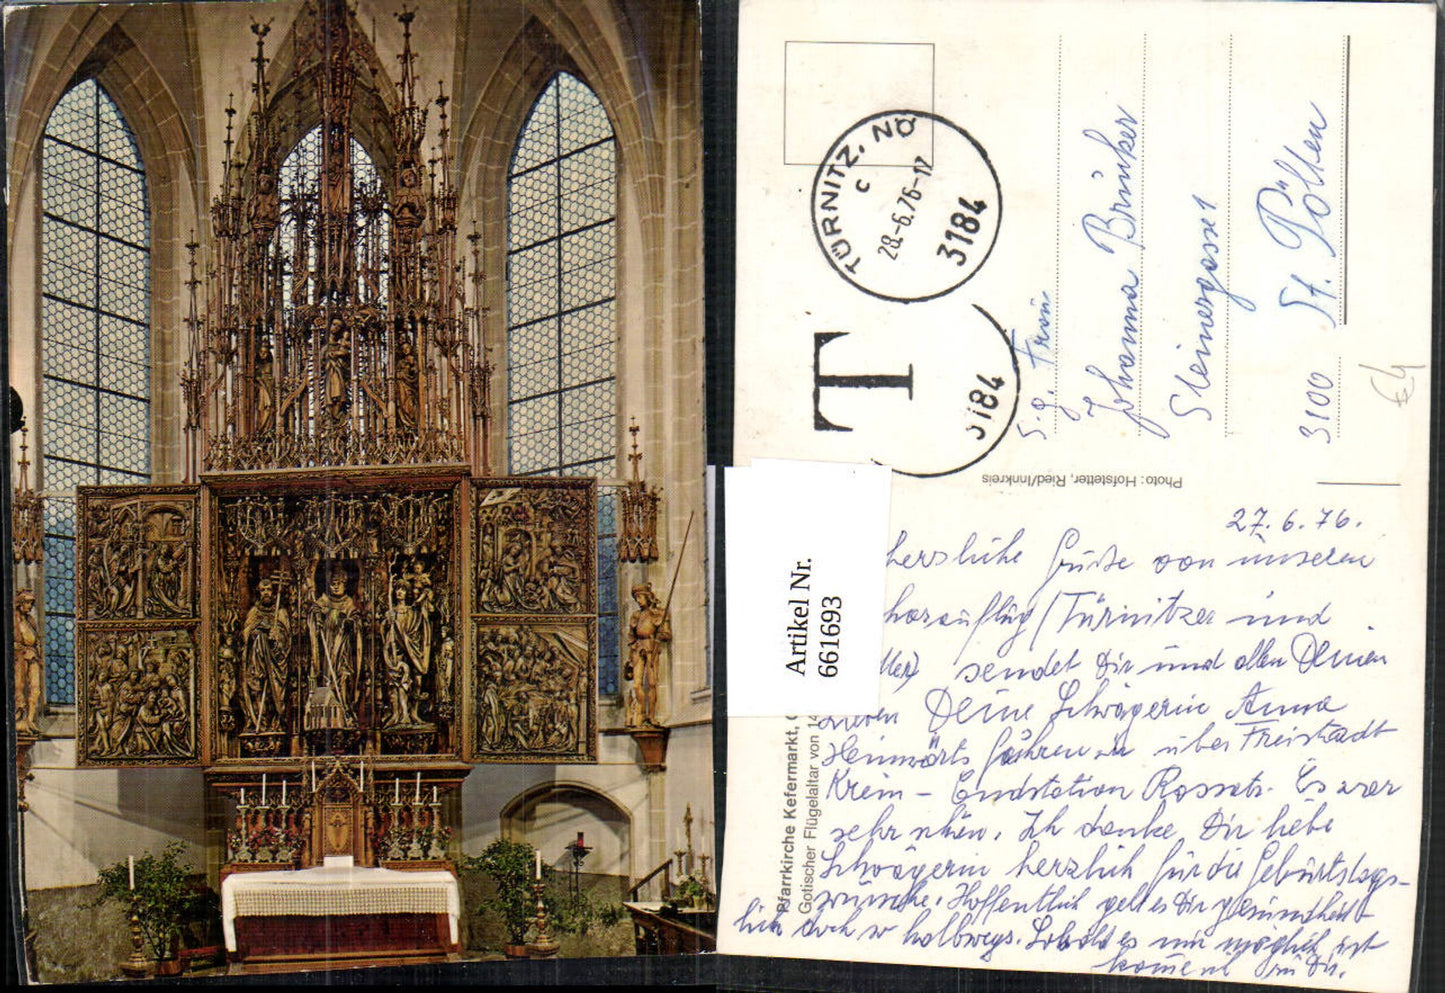 TÜRNITZ, NÖ
c
28.-6.76-17
3184
T
3184
S. g. Frau
Johanna Brunker
Steinergasse 1
3100 St. Pölten
€4
Photo: Hofstetter, Ried/Innkreis
Artikel Nr.
661693
Pfarrkirche Kefermarkt,
Gotischer Flügelaltar von 14
27.6.76.
herzliche Grüße von unseren
chorausflug (Türnitzer und
sendet Dir und allen Deinen
Lieben Deine Schwägerin Anna
Heimwärts fahren wir über Freistadt
Krem – Endstation Rossatz. Es war
sehr schön. Ich danke Dir liebe
Schwägerin herzlich für die Geburtstags-
wünsche. Hoffentlich geht es Dir gesundheit-
lich doch so halbwegs. Sobald es mir möglich ist
komme ich zu Dir.